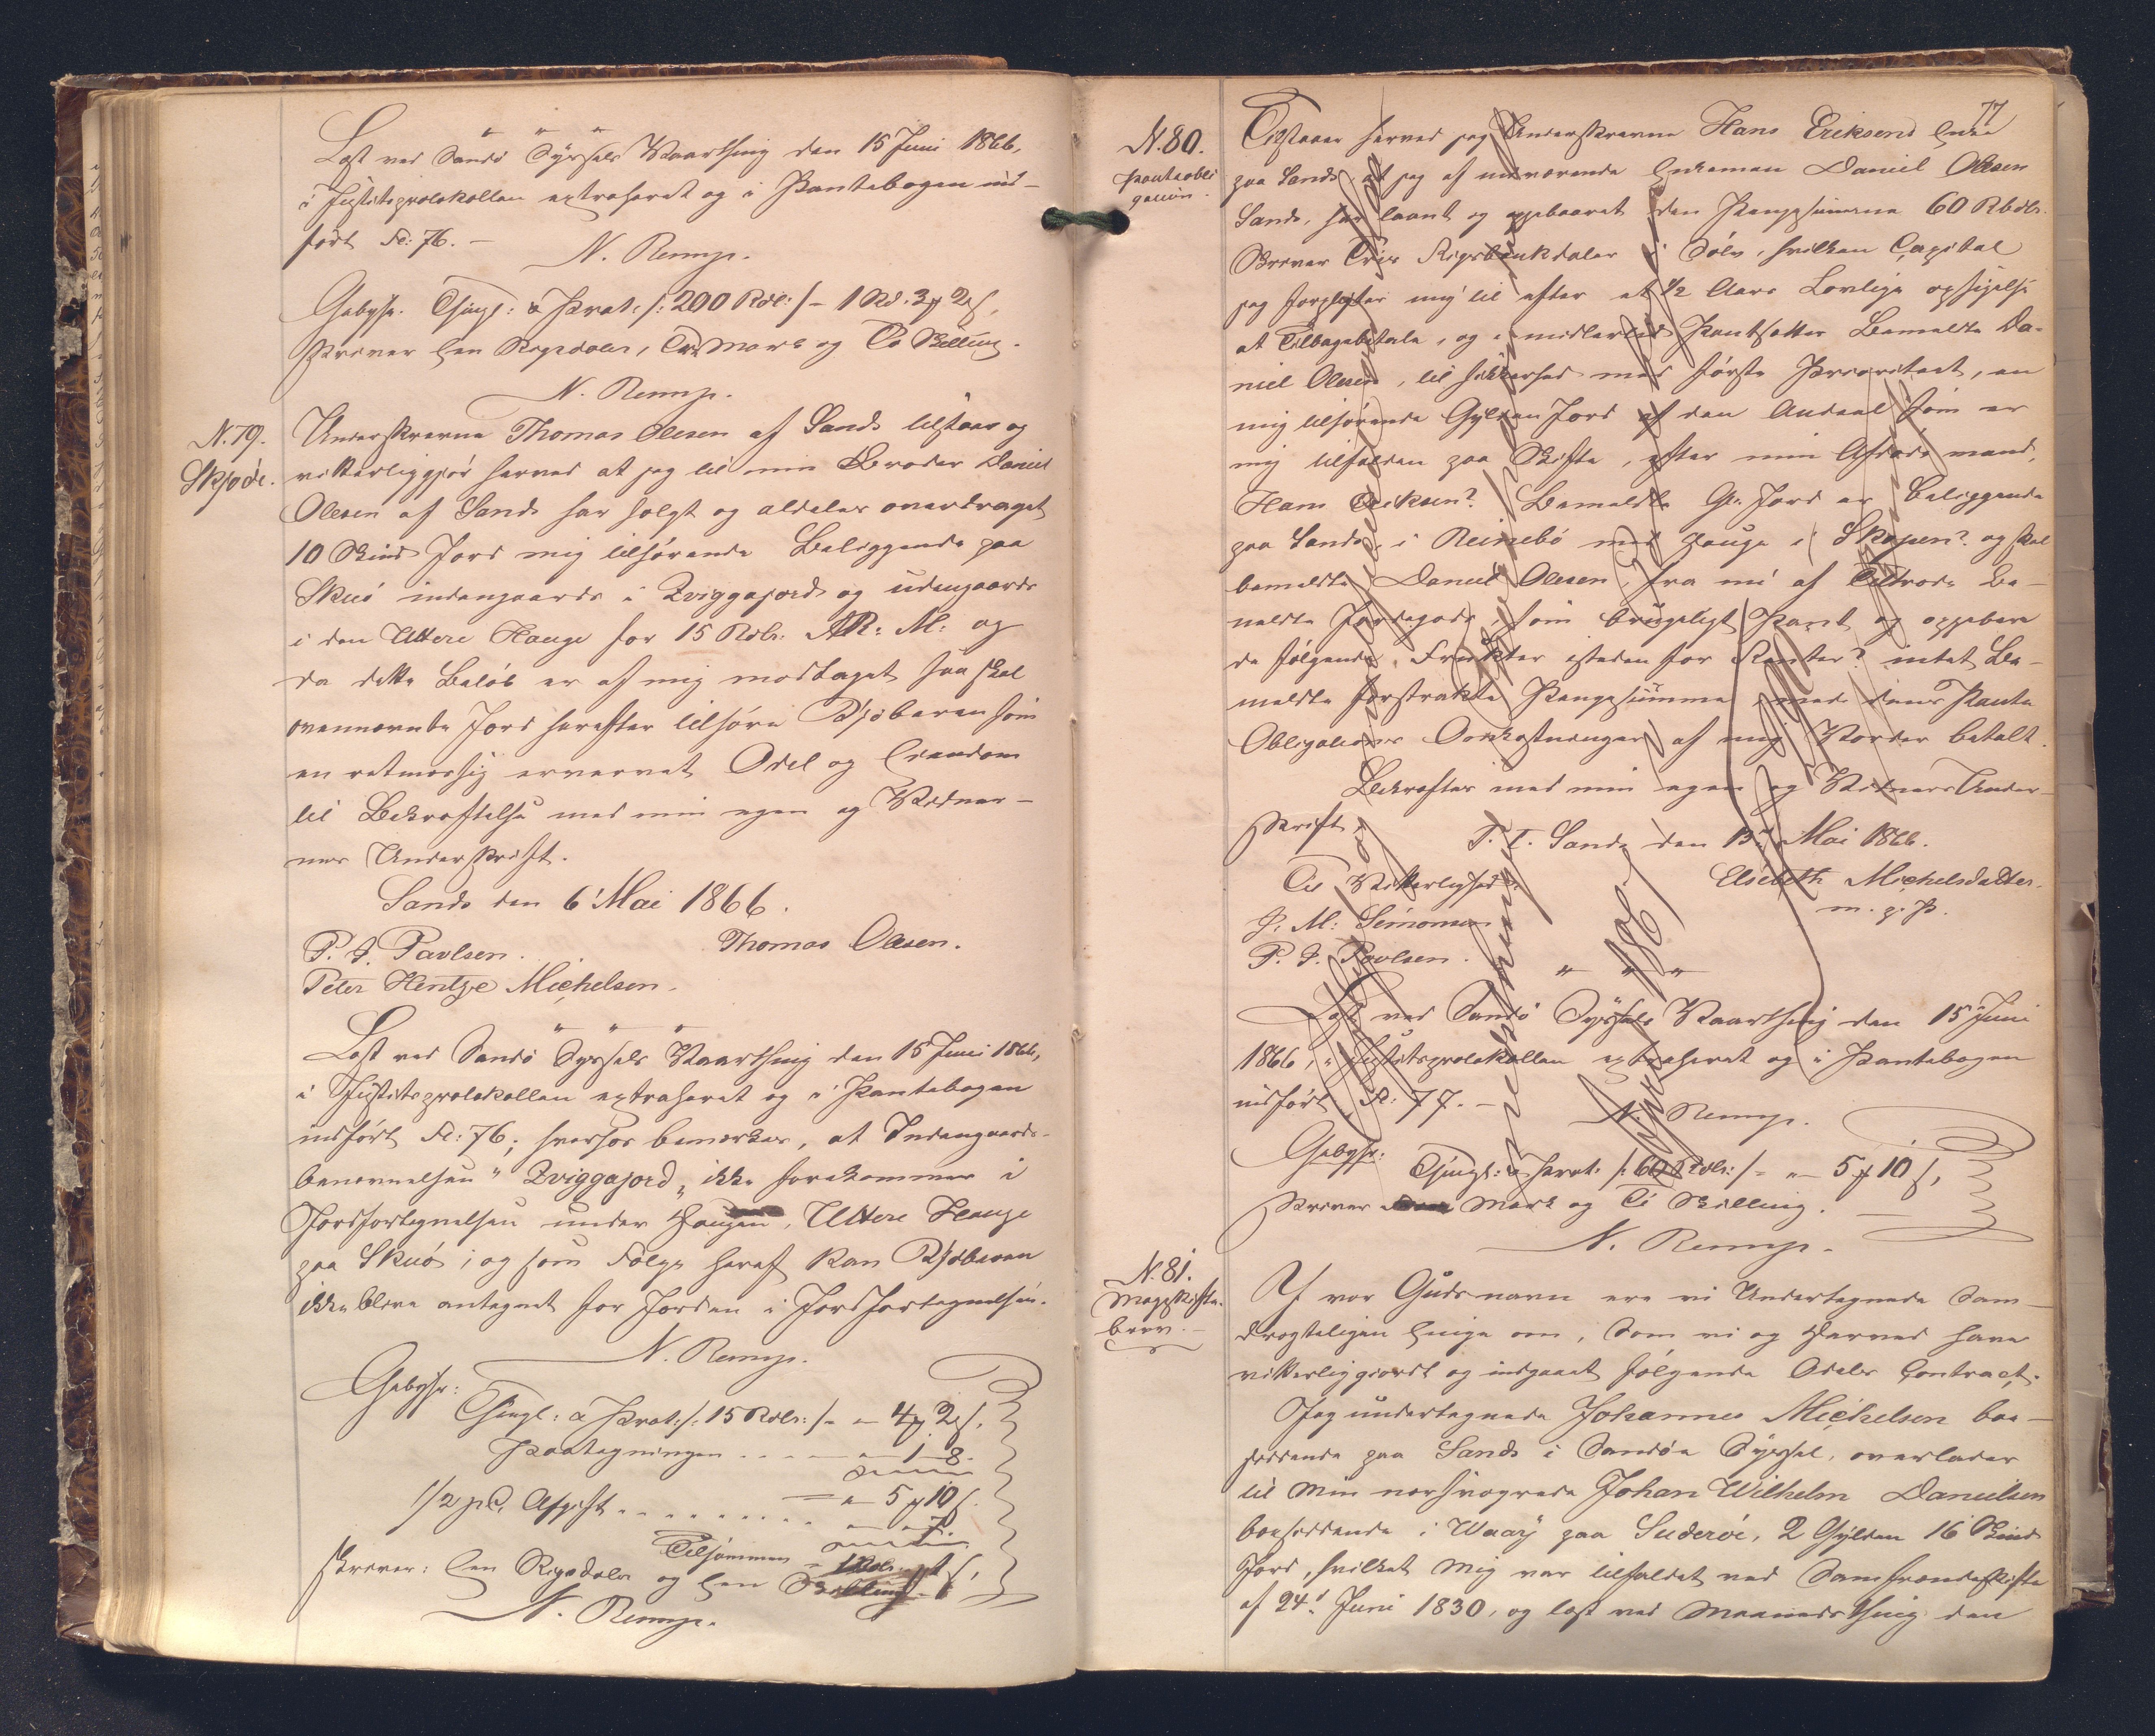 Læst ved Sandö Syssels Vaarthing den 15 Juni 1866,
i Justitsprotokollen extraheret og i Pantebogen ind-
fört Fol: 76. –
N. Remp.
Gebyhr. Thingl: à Prot: /: 200 Rdl: /– 1 Rd. 3 ℳ 2 ß,
skriver Een Rigsdaler, Tre Mark og To Skilling.
N. Remp.
N. 79.
Skjöde.
Underskrevne Thomas Olesen af Sands tilstaar og
vitterliggjör herved at jeg til min Broder Daniel
Olesen af Sands har solgt og aldeles overdraget
10 Skind Jord mig tilhörende Beliggende paa
Skuö indengaards i Zviggajord og udengaards
i den Uttere Hauge for 15 Rdlr. R: M: og
da dette Belöb er af mig modtaget saa skal
ovennævnte Jord herefter tilhöre Kjöberen som
en retmæssig erværvet Odel og Eiendom
til Bekræftelse med min egen og Vidner-
nes Underskrift.
Sands den 6' Mai 1866.
Thomas Olesen.
P. J. Pavlsen.
Peter Hentze Michelsen.
Læst ved Sandö Syssels Vaarthing den 15 Juni 1866,
i Justitsprotokollen extraheret og i Pantebogen
indfört Fol: 76; hvorhos bemærkes, at Indengaards-
benævnelsen "Zviggajord" ikke forekommer i
Jordfortegnelsen under Haugen, Uttere Hauge
paa Skuö; og som Fölge heraf kan Kjöberen
ikke blive antegnet for Jorden i Jordfortegnelsen.
N. Remp.
Gebyhr:
Thingl: à Prot: /: 15 Rdlr: /– " – 4 ℳ 2 ß.
Paategningen . . . . – " – 1 – 8.
" – 5 ℳ 10 ß.
1/2 pC. Afgift . . . . . . . .
Tilsammen
skriver: Een Rigsdaler og Een Skilling
N. Remp.
77
N. 80.
Panteobli
gation.
Tilstaaer herved jeg Underskrevne Hans Eriksens Enke
paa Sands, at jeg af nuværende Enkemand Daniel Olesen
Sands, har laant og oppebaaret den Pengesumma 60 Rbdlr.
skriver Très Rigsbankdaler i Sölv, hvilken Capital
jeg forpligter mig til efter et 1/2 Aars Lovlige opsigelse
at Tilbagebetale, og imidlertid Pantsætter Bemeldte Da-
niel Olesen, til sikkerhed med förste Prioritæt, en
mig tilhörende Gylden Jord af den Andeel som er
mig tilfalden paa Skifte, efter min Afdöde mand,
Hans Eriksen? Bemeldte Gl. Jord er Beliggende
paa Sands, i Reinebö med Hauge i Skopen? og skal
bemeldte Daniel Olesen, fra nu af tiltræde be-
meldte Jordegods, som brugeligt Pant og oppebære
de fölgende Frukter istedenfor Renter? intet Be-
meldte forstrakte Pengesumma, med denne Pante
Obligations Omkostninger af mig Vorder betalt.
Bekræftes med min egen og Vidners Under-
skrift,
T. T. Sands den 13' Mai 1866.
Til Vitterlighed:
Elsebeth Michelsdatter
m. p. P.
J. M: Simonsen
P. J. Poulsen.
Læst ved Sandö Syssels Vaarthing den 15 Juni
1866, i Justitsprotokollen extraheret og i Pantebogen
indfört Fol: 77. –
N. Remp.
Gebyhr:
Thingl: à Prot: /: 60 Rdlr: /– " – 5 ℳ 10 ß,
skriver Mark og Ti Skilling.
N. Remp.
N. 81.
Mageskifte-
brev. –
I vor Guds navn ere vi Undertegnede Sam-
drægteligen Enige om, Som vi og Herved have
vitterliggiordt og indgaaet fölgende Odels Contract.
Jeg undertegnede Johannes Michelsen boe-
siddende paa Sands i Sandöe Syssel, overlader
til Min nærsvogrede Johan Wilhelm Danielsen
boesiddende i Waaÿ paa Suderöe, 2 Gylden 16 Skind
Jord, hvilket Mig var tilfaldet ved Samfrændeskifte
af 24' Juni 1830, og læst ved Maanedsthing den